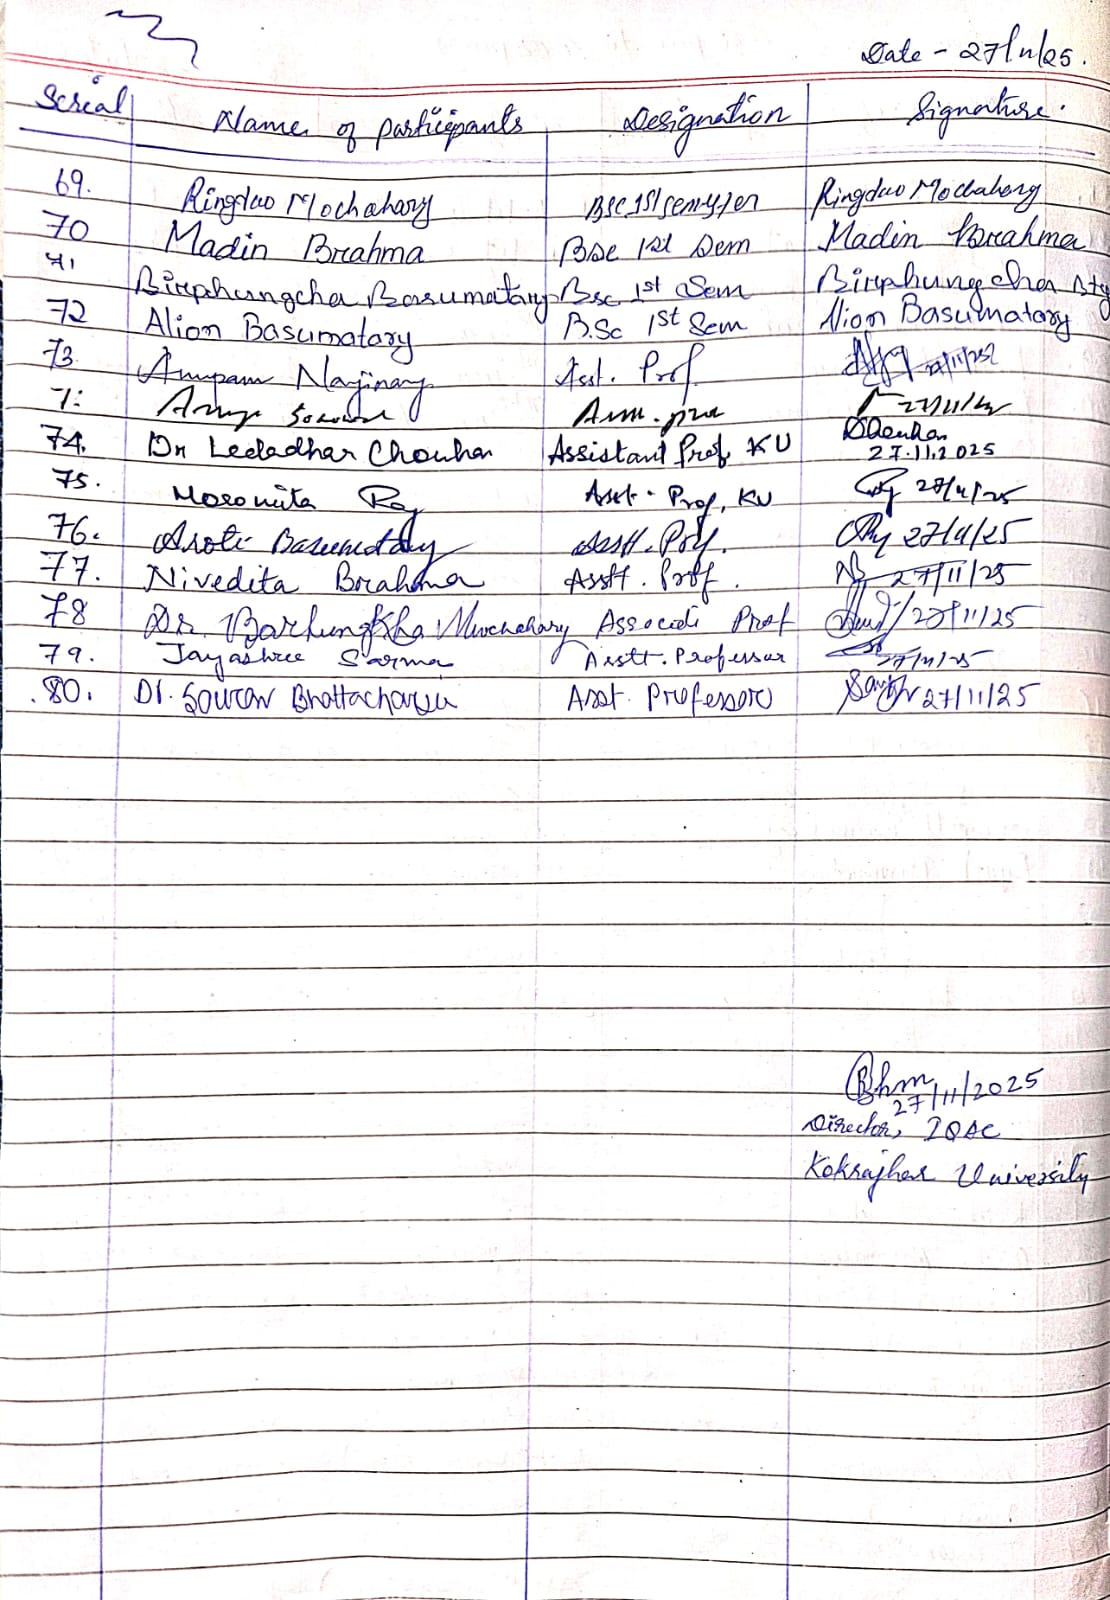 Date - 27/11/25.
Serial Name of participants Designation Signature.
69. Ringdao Mochahary BSc 1st semester Ringdao Mochahary
70 Madin Brahma BSc 1st Sem Madin Brahma
71 Birphungcha Basumatary Bsc 1st Sem Birphungcha Bty
72 Alion Basumatary B.Sc 1st Sem Alion Basumatary
73 Anupam Narjinary Asst. Prof.
27/11/25
74. Dr Leeladhar Chouhan Assistant Prof. KU DChouhan
27.11.2025
75. Mosomita Roy Asst. Prof, KU 27/11/25
76. Aroti Basumatary Asstt. Prof. 27/11/25
77. Nivedita Brahma Asstt. Prof. NB 27/11/25
78 Dr. Barhungkha Mwchahary Associate Prof 27/11/25
79. Jayashree Sarma Asstt. Professor 27/11/25
80. Dr. Sourav Bhattacharjee Asst. Professor 27/11/25
Bhm
27/11/2025
Director, IQAC
Kokrajhar University